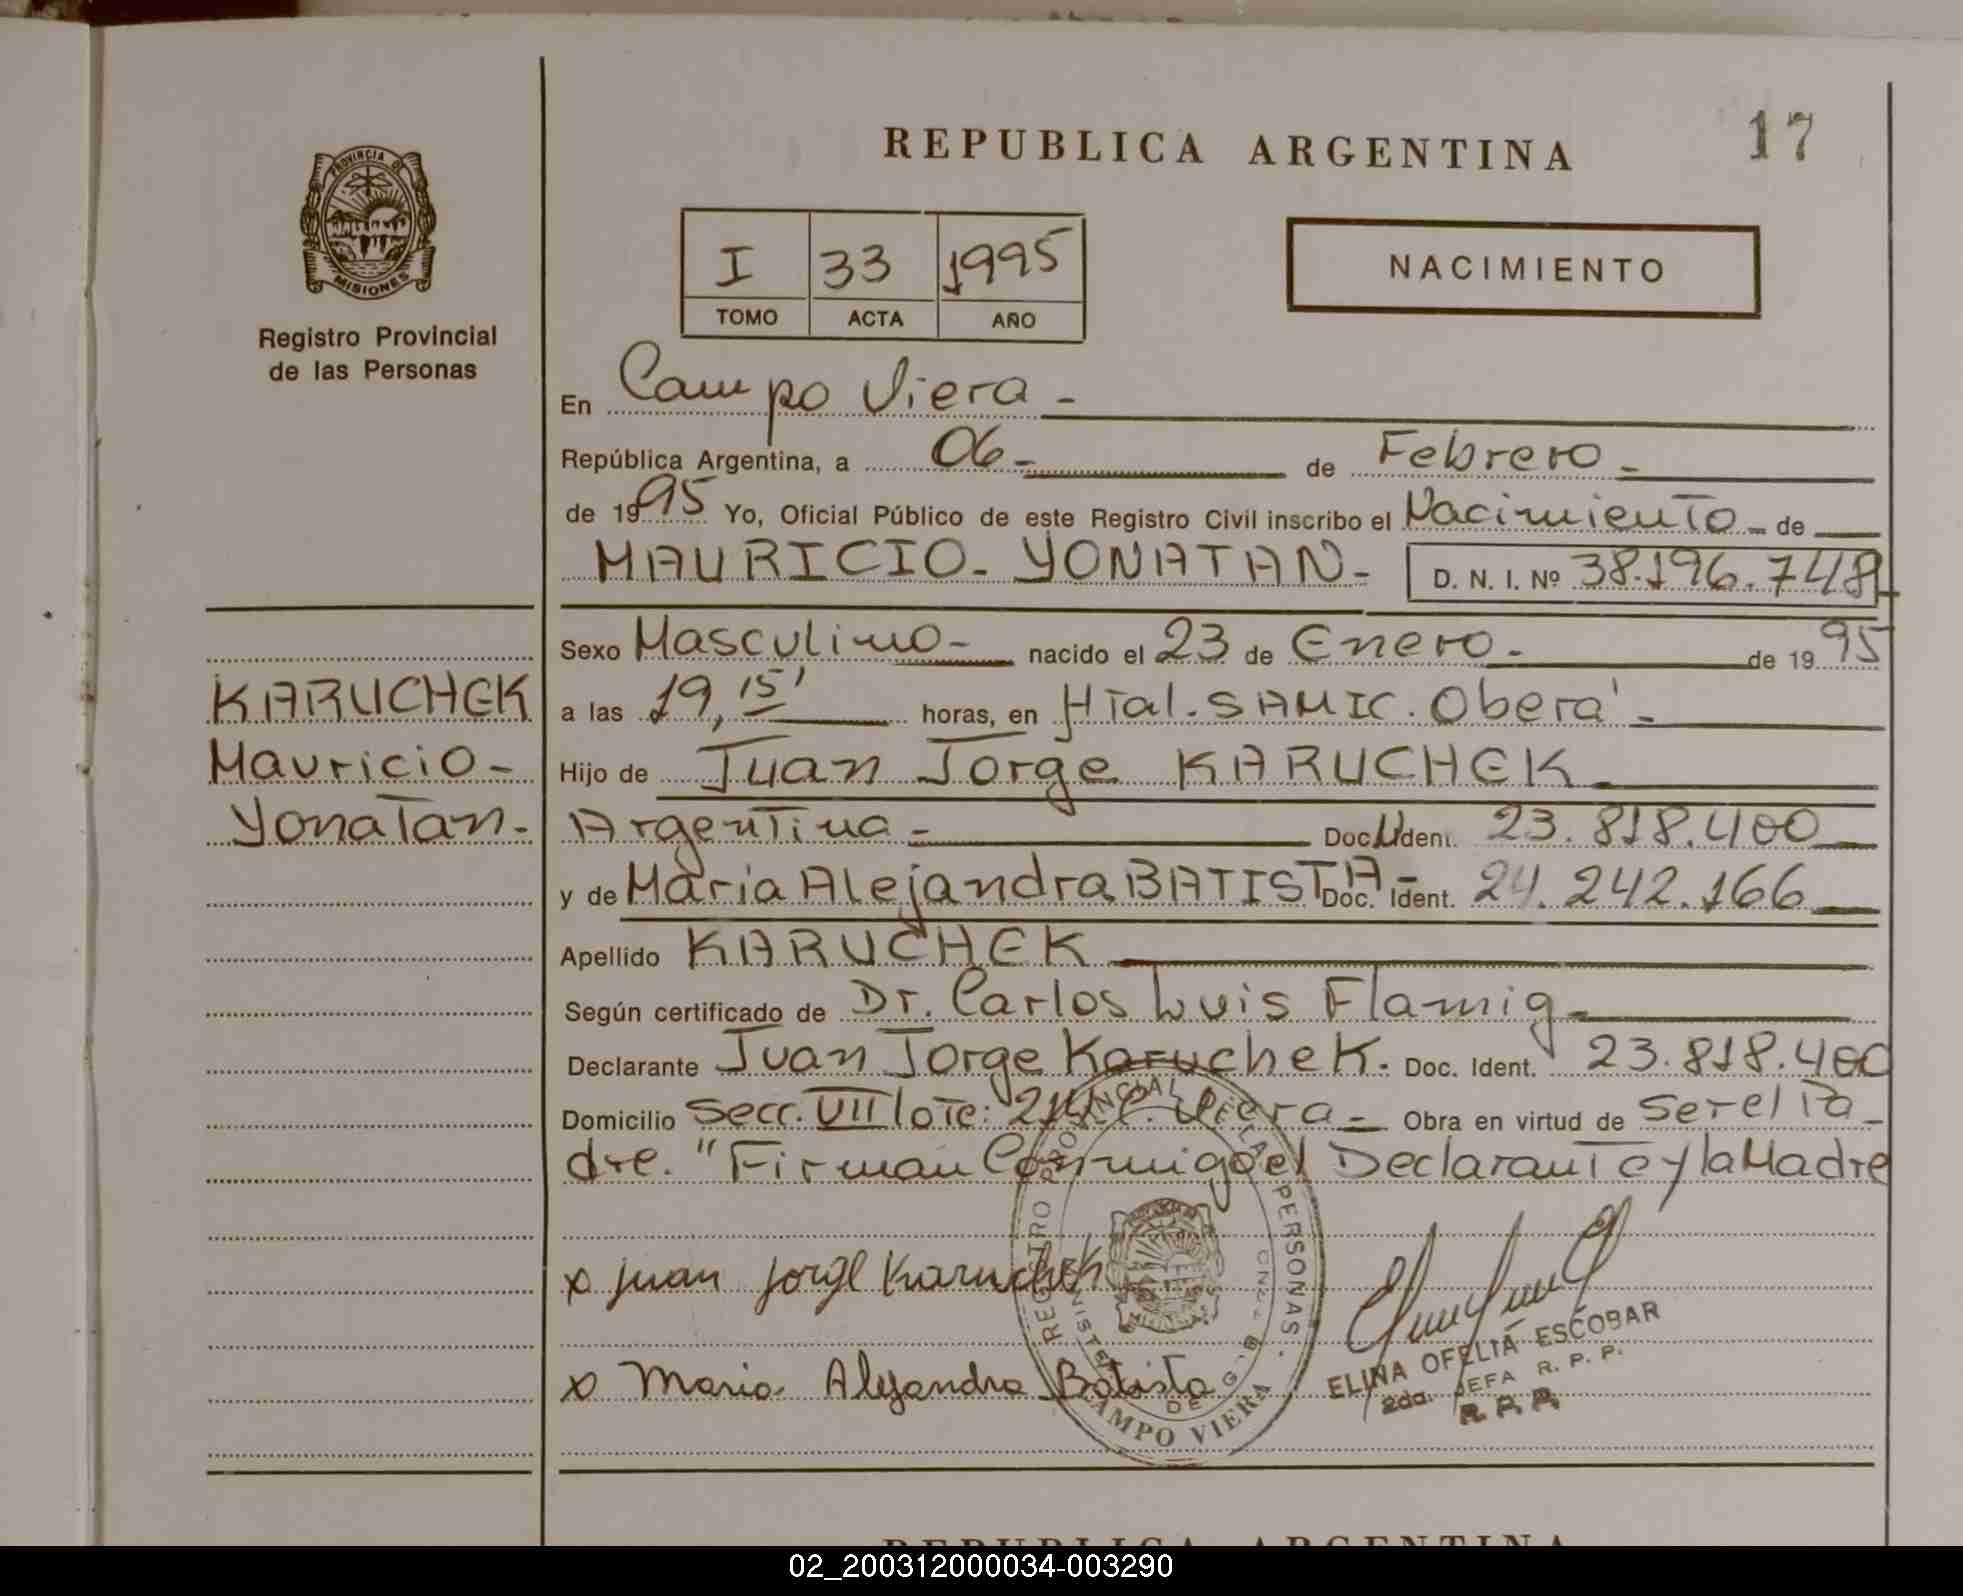 REPUBLICA ARGENTINA
17
PROVINCIA DE
MISIONES
Registro Provincial
de las Personas
I 33 1995
TOMO ACTA AÑO
NACIMIENTO
En Campo Viera -
República Argentina, a 06 - de Febrero -
de 1995 Yo, Oficial Público de este Registro Civil inscribo el Nacimiento - de
MAURICIO - YONATAN - D. N. I. Nº 38.196.748
Sexo Masculino - nacido el 23 de Enero - de 1995
KARUCHEK
a las 19, 15' horas, en Htal. SAMIC. Oberá -
Mauricio -
Hijo de Juan Jorge KARUCHEK -
Yonatan -
Argentina - Doc. Ident. 23.818.400
y de Maria Alejandra BATISTA - Doc. Ident. 24.242.166
Apellido KARUCHEK
Según certificado de Dr. Carlos Luis Flamig -
Declarante Juan Jorge Karuchek. Doc. Ident. 23.818.400
Domicilio Secc. VII lote: Viera - Obra en virtud de ser el Pa-
dre. "Firman Conmigo el Declarante y la Madre
x juan jorge Karuchek
x Maria Alejandra Batista
REGISTRO PROVINCIAL DE LAS PERSONAS
CAMPO VIERA
ELINA OFELIA ESCOBAR
2da. JEFA R. P. P.
R. P. P.
REPUBLICA ARGENTINA
02_200312000034-003290